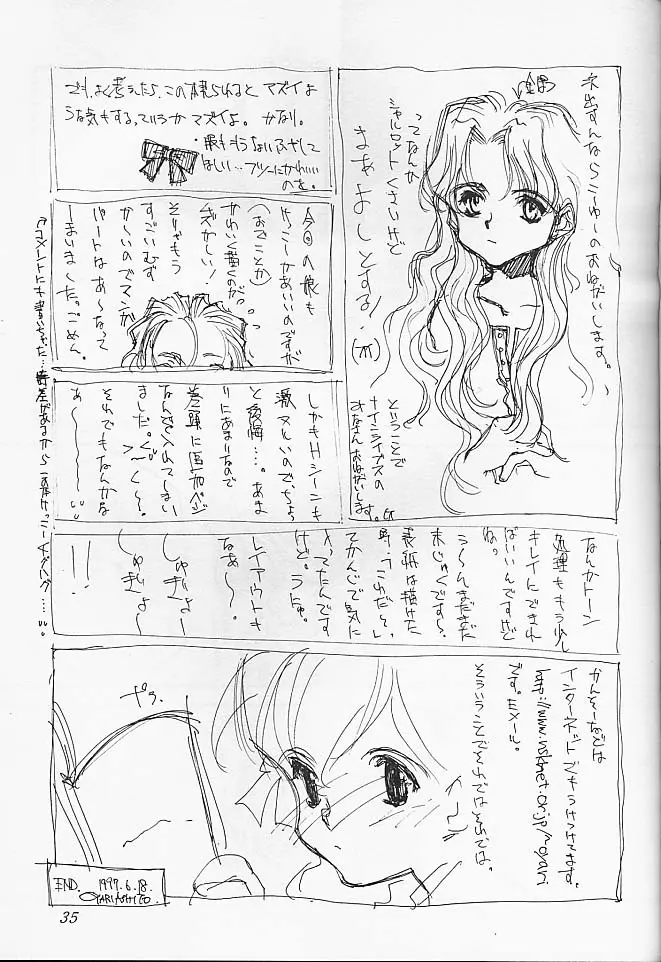 ネ出すんならこーゆーのおねがいします。
ってなんか
シャルロットくさいけど
まぁよしとする!
ということで
ナインライブスの
みなさんおねがいします。
でも、よく考えたら、この様られると マズイよ
うな気もする。ていうか マズイよ。 かなり。
ほしい…フツーにかわいい
のを。
今回の娘も
けっこーかあいいのですが
(おでことか)
かわいく描くのが
ムズかしい!
そりゃもう
すごいむず
かしいのでマンガ
パートはあーなって
しまいました。ごめん。
しかもHシーンも
激ヌルいので、ちょっ
と後悔…。あま
りにあまりなので
巻頭に追加ページ
なんぞ入れてしまい
ました。ぐへへ〜。
それでもなんかな
あ〜
なんかトーン
処理ももう少し
キレイにできれ
ばいいんですけど
ね。
う〜んまだまだ
未じゅくです〜。
表紙は描けた
時、「これだ!」
てかんじで気に
入ってたんです
けど。うにゅ。
レイアウトも
なぁ〜。
しゅぎょー
しゅぎょ〜
!!
かんそーなどは
インターネットでもうけつけてます。
http://www.nsknet.or.jp/~oyari
です。Eメール。
そういうことでそれではそれでは。
END. 1997.6.18.
OYARI ASHITO.
35